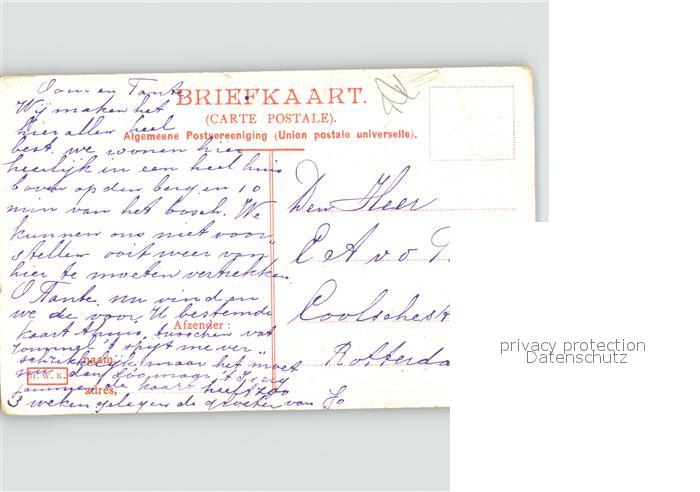 Oom en Tante
Wij maken het
hier allen heel
best. we wonen hier
heerlijk in een heel huis
boven op den berg en 10
min van het bosch. We
kunnen ons niet voor
stellen ooit weer van
hier te moeten vertrekken.
O Tante, nu vinden
we de voor U bestemde
kaart thuis, tusschen wat
rommel 't spijt me ver
schrikkelijk maar het moet
dan zóó maar
jammer de kaart heeft zoo
3 weken gelegen de groeten van Jo
BRIEFKAART.
(CARTE POSTALE).
Algemeene Postvereeniging (Union postale universelle).
Den Heer
Coolschest
Rotterda
Afzender:
naam,
adres,
privacy protection
Datenschutz